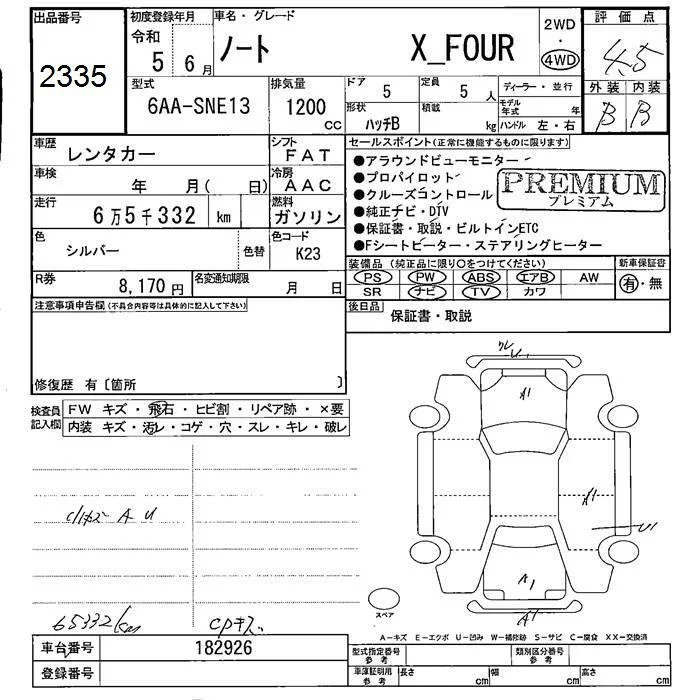 出品番号
2335
初度登録年月
令和
5 6月
車名・グレード
ノート X_FOUR
2WD
・
4WD
評価点
4.5
外装 内装
B B
型式
6AA-SNE13
排気量
1200
CC
ドア
5
定員
5 人
形状
ハッチB
積載
kg
ディーラー・並行
モデル年式
年
ハンドル 左・右
車歴
レンタカー
シフト
FAT
車検
年 月( 日)
冷房
AAC
走行
6万5千332 km
燃料
ガソリン
色
シルバー
色替
色コード
K23
R券
8,170円
名変通知期限
月 日
セールスポイント(正常に機能するものに限ります)
●アラウンドビューモニター
●プロパイロット
●クルーズコントロール
●純正ナビ・DTV
●保証書・取説・ビルトインETC
●Fシートヒーター・ステアリングヒーター
PREMIUM
プレミアム
装備品(純正品に限り○をつけてください)
PS PW ABS エアB AW
SR ナビ TV カワ
新車保証書
有・無
後日品
保証書・取説
注意事項申告欄(不具合内容等は具体的に記入して下さい)
修復歴 有〔箇所 〕
検査員記入欄
FW キズ・飛石・ヒビ割・リペア跡・×要
内装 キズ・汚レ・コゲ・穴・スレ・キレ・破レ
A U
65332km
cpキズ
A1
A1
U1
A1
A1
スペア
A-キズ E-エクボ U-凹み W-補修跡 S-サビ C-腐食 XX-交換済
車台番号
182926
登録番号
型式指定番号
参考
類別区分番号
参考
車庫証明用
参考
長さ cm
幅 cm
高さ cm